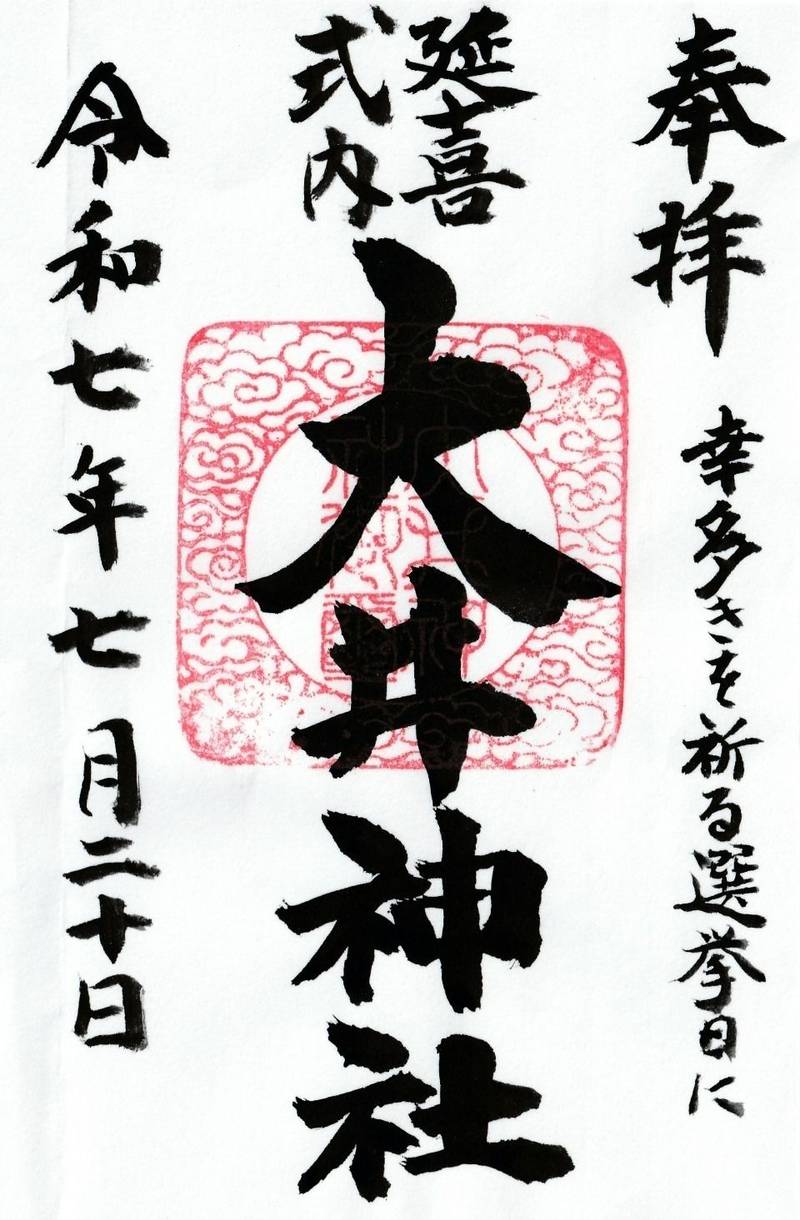 奉拝
幸多きを祈る選挙日に
延喜
式内
大井神社
令和七年七月二十日